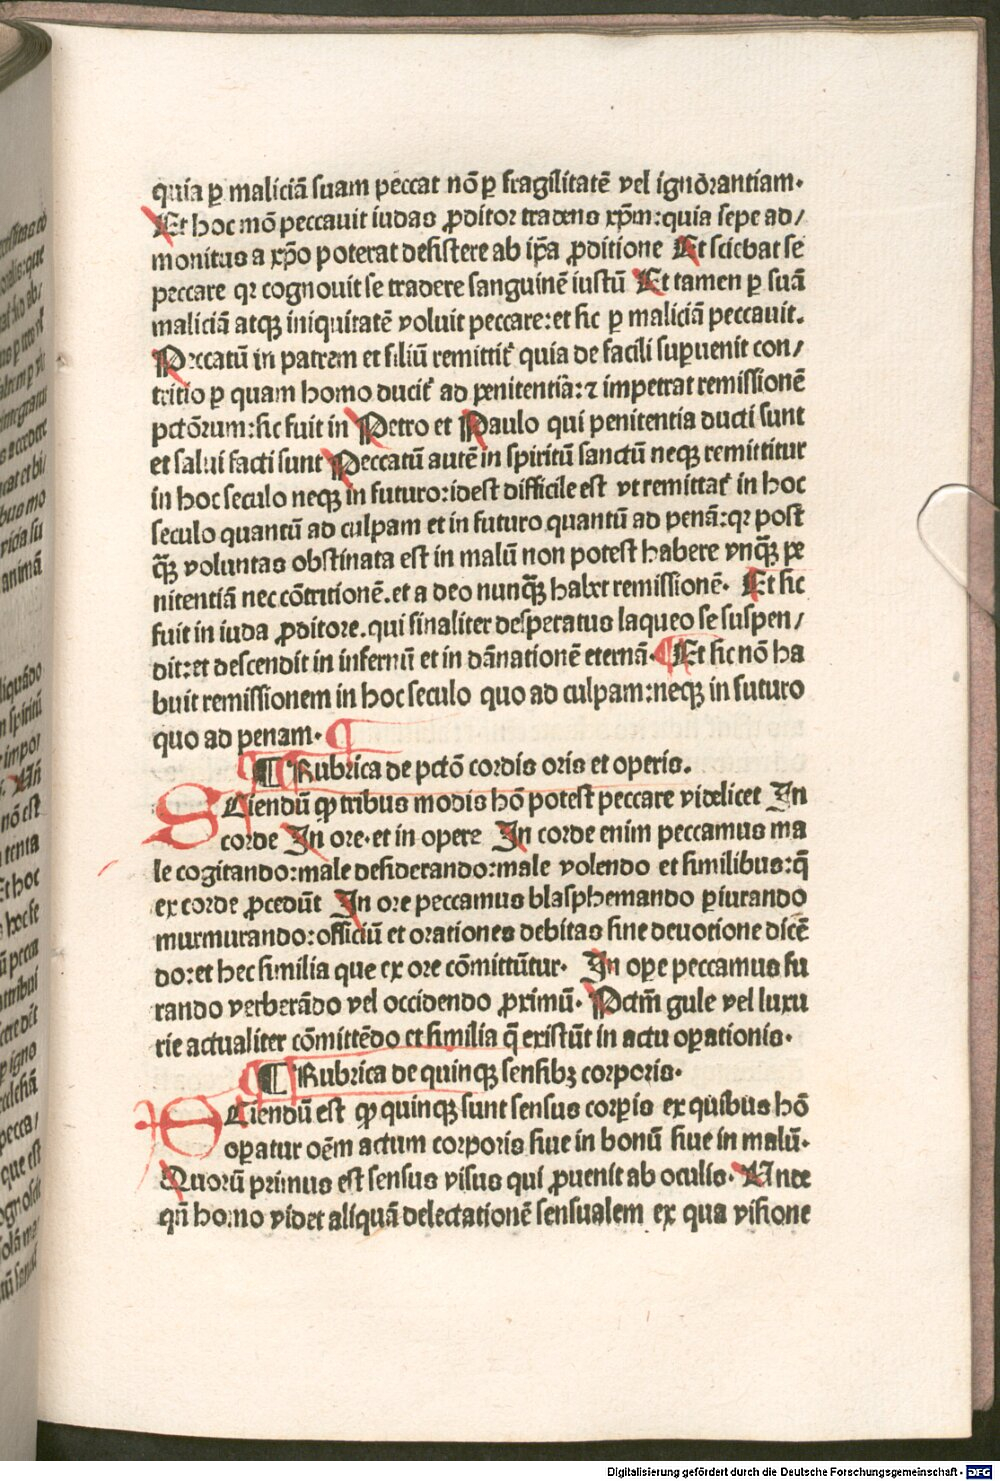 quia ꝑ maliciā suam peccat nō ꝑ fragilitatē vel ignōrantiam.
Et hoc mō peccauit iudas ꝓditor tradens xp̄m: quia sepe ad/
monitus a xp̄o poterat desistere ab ip̄a ꝓditione Et sciebat se
peccare qꝛ cognouit se tradere sanguinē iustū Et tamen ꝑ suā
maliciā atqꝫ iniquitatē voluit peccare: et sic ꝑ maliciā peccauit.
Peccatū in patrem et filiū remittit᷑ quia de facili suꝑuenit con/
tritio ꝑ quam homo ducit᷑ ad penitentiā: ⁊ impetrat remissionē
pctōrum: sic fuit in Petro et Paulo qui penitentia ducti sunt
et salui facti sunt Peccatū autē in spiritū sanctū neqꝫ remittitur
in hoc seculo neqꝫ in futuro: idest difficile est vt remittat᷑ in hoc
seculo quantū ad culpam et in futuro quantū ad penā: qꝛ post
qꝫ̄ voluntas obstinata est in malū non potest habere vnqꝫ̄ pe
nitentiā nec cōtritionē. et a deo nunqꝫ̄ habet remissionē. Et sic
fuit in iuda ꝓditore. qui finaliter desperatus laqueo se suspen/
dit: et descendit in infernū et in dānationē eternā. ¶ Et sic nō ha
buit remissionem in hoc seculo quo ad culpam: neqꝫ in futuro
quo ad penam. ¶
¶ Rubrica de pctō cordis oris et operis.
SCiendū ꝙ tribus modis hō potest peccare videlicet In
corde In ore. et in opere In corde enim peccamus ma
le cogitando: male desiderando: male volendo et similibus: q̄
ex corde ꝓcedūt In ore peccamus blasphemando ꝑiurando
murmurando: officiū et orationes debitas sine deuotione dicē
do: et hec similia que ex ore cōmittūtur. In oꝑe peccamus fu
rando verberādo vel occidendo ꝓximū. Pctm̄ gule vel luxu
rie actualiter cōmittēdo et similia q̄ existūt in actu oꝑationis.
¶ Rubrica de quinqꝫ sensibꝫ corporis.
SCiendū est ꝙ quinqꝫ sunt sensus corꝑis ex quibus hō
oꝑatur oēm actum corporis siue in bonū siue in malū.
Quorū primus est sensus visus qui ꝓuenit ab oculis. Ande
qn̄ homo videt aliquā delectationē sensualem ex qua visione
Digitalisierung gefördert durch die Deutsche Forschungsgemeinschaft - DFG